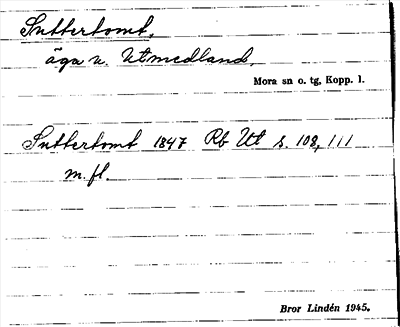 Suttertomt,
äga u. Utmedland,
Mora sn o. tg, Kopp. l.
Suttertomt 1847 Rb Ut s. 108, 111
m.fl.
Bror Lindén 1945.